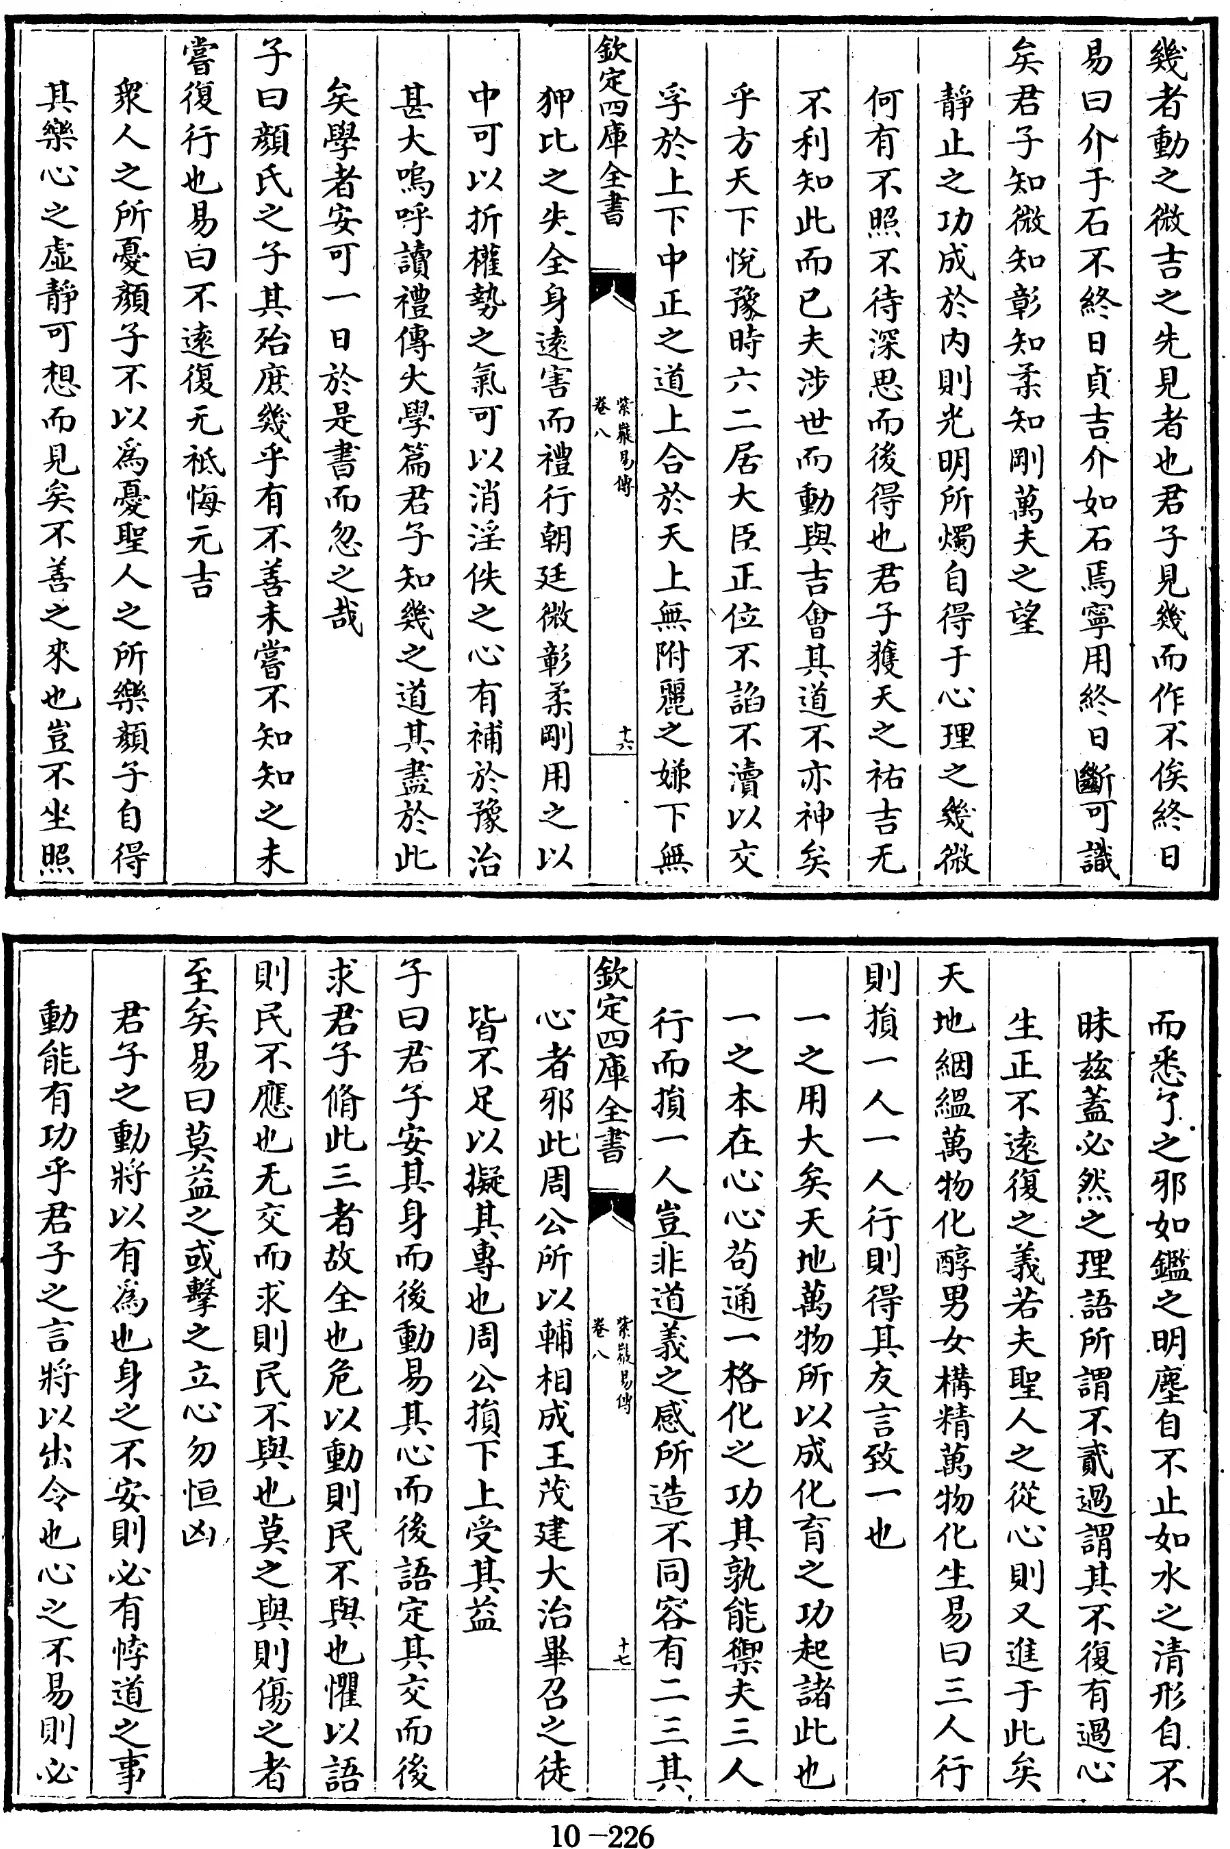 幾者動之微吉之先見者也君子見幾而作不俟終日
易曰介于石不終日貞吉介如石焉寧用終日斷可識
矣君子知微知彰知柔知剛萬夫之望
靜止之功成於内則光明所燭自得于心理之幾微
何有不照不待深思而後得也君子獲天之祐吉无
不利知此而已夫涉世而動與吉會其道不亦神矣
乎方天下悅豫時六二居大臣正位不諂不瀆以交
孚於上下中正之道上合於天上無附麗之嫌下無
欽定四庫全書
紫巖易傳
卷八
十六
狎比之失全身遠害而禮行朝廷微彰柔剛用之以
中可以折權勢之氣可以消淫佚之心有補於豫治
甚大嗚呼讀禮傳大學篇君子知幾之道其盡於此
矣學者安可一日於是書而忽之哉
子曰顏氏之子其殆庶幾乎有不善未嘗不知知之未
嘗復行也易曰不遠復无祗悔元吉
衆人之所憂顏子不以爲憂聖人之所樂顏子自得
其樂心之虛靜可想而見矣不善之來也豈不坐照
而悉了之邪如鑑之明塵自不止如水之清形自不
昧茲蓋必然之理語所謂不貳過謂其不復有過心
生正不遠復之義若夫聖人之從心則又進于此矣
天地絪縕萬物化醇男女構精萬物化生易曰三人行
則損一人一人行則得其友言致一也
一之用大矣天地萬物所以成化育之功起諸此也
一之本在心心苟通一格化之功其孰能禦夫三人
行而損一人豈非道義之感所造不同容有二三其
欽定四庫全書
紫巖易傳
卷八
十七
心者邪此周公所以輔相成王茂建大治畢召之徒
皆不足以擬其專也周公損下上受其益
子曰君子安其身而後動易其心而後語定其交而後
求君子脩此三者故全也危以動則民不與也懼以語
則民不應也无交而求則民不與也莫之與則傷之者
至矣易曰莫益之或擊之立心勿恒凶
君子之動將以有爲也身之不安則必有悖道之事
動能有功乎君子之言將以出令也心之不易則必
10-226